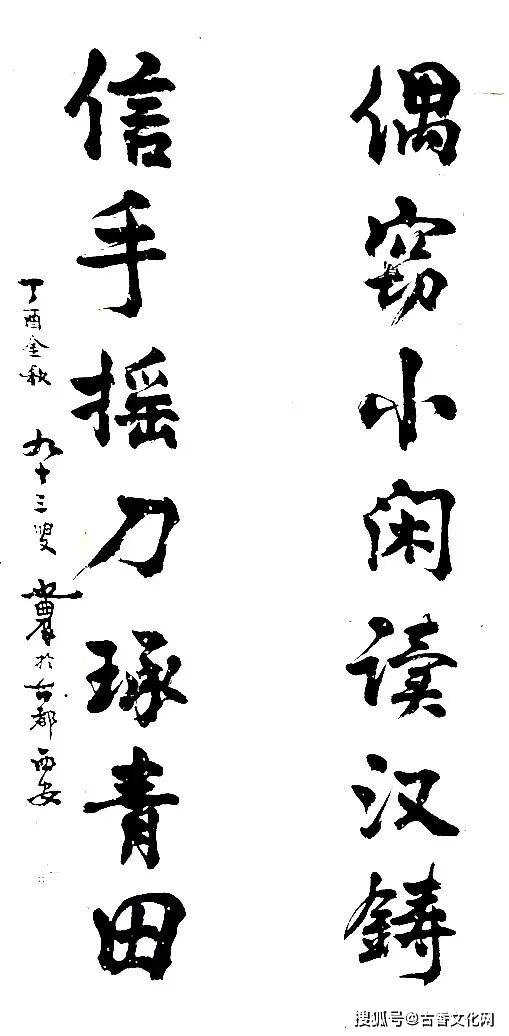 偶窃小闲读汉铸
信手摇刀琢青田
丁酉金秋 九十三叟 於古都西安
搜狐号@古香文化网